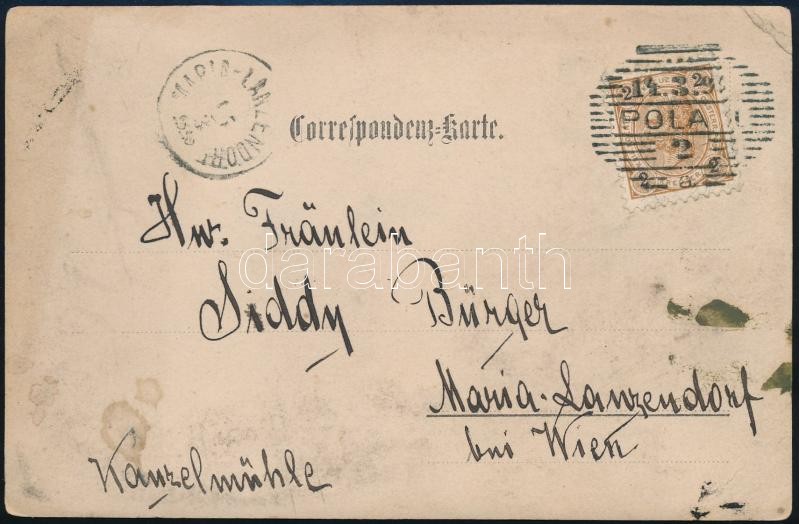 MARIA-LANZENDORF
Correspondenz-Karte.
14.3.
POLA 1
2
Hw. Fräulein
darabanth
Siddy Bürger
Maria-Lanzendorf
bei Wien
Kanzelmühle